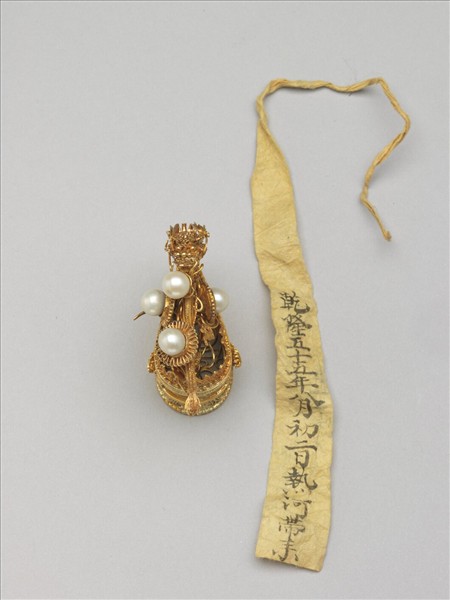 乾隆五十五年八月初二日熱河帶來